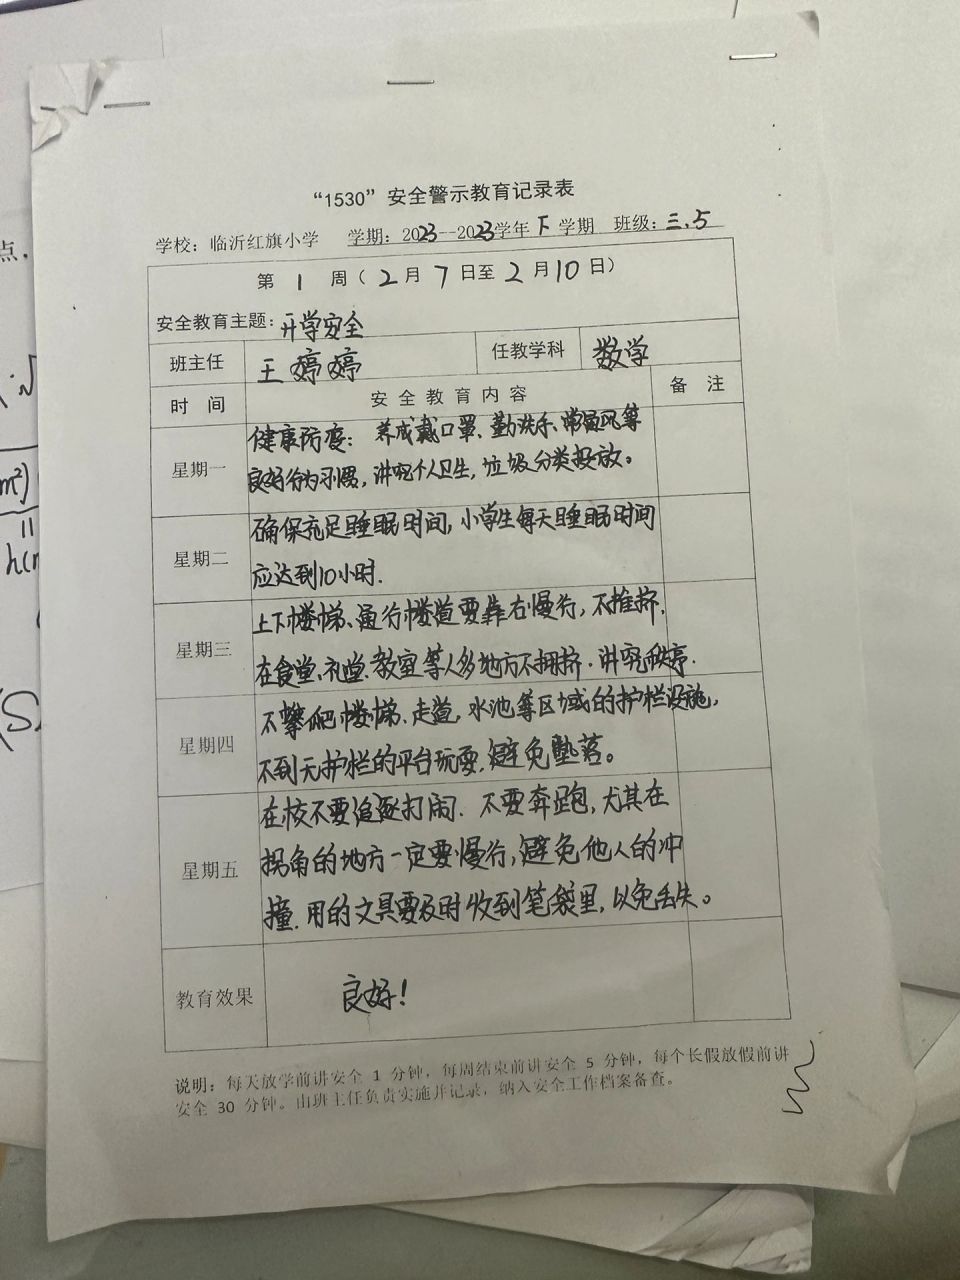 “1530”安全警示教育记录表
学校：临沂红旗小学 学期：2023--2023学年下学期 班级：三.5
第 1 周（2月7日至2月10日）
安全教育主题：开学安全
班主任 王婷婷 任教学科 数学
时 间 安全教育内容 备 注
星期一
健康防疫：养成戴口罩、勤洗手、常通风等
良好行为习惯，讲究个人卫生，垃圾分类投放。
星期二
确保充足睡眠时间，小学生每天睡眠时间
应达到10小时.
星期三
上下楼梯、通行楼道要靠右慢行，不推挤.
在食堂、礼堂、教室等人多地方不拥挤.讲究秩序.
星期四
不攀爬楼梯、走道，水池等区域的护栏设施，
不到无护栏的平台玩耍，避免坠落。
星期五
在校不要追逐打闹.不要奔跑，尤其在
拐角的地方一定要慢行，避免他人的冲
撞.用的文具要及时收到笔袋里，以免丢失。
教育效果 良好！
说明：每天放学前讲安全 1 分钟，每周结束前讲安全 5 分钟，每个长假放假前讲
安全 30 分钟。由班主任负责实施并记录，纳入安全工作档案备查。
点.
m²)
11
(S